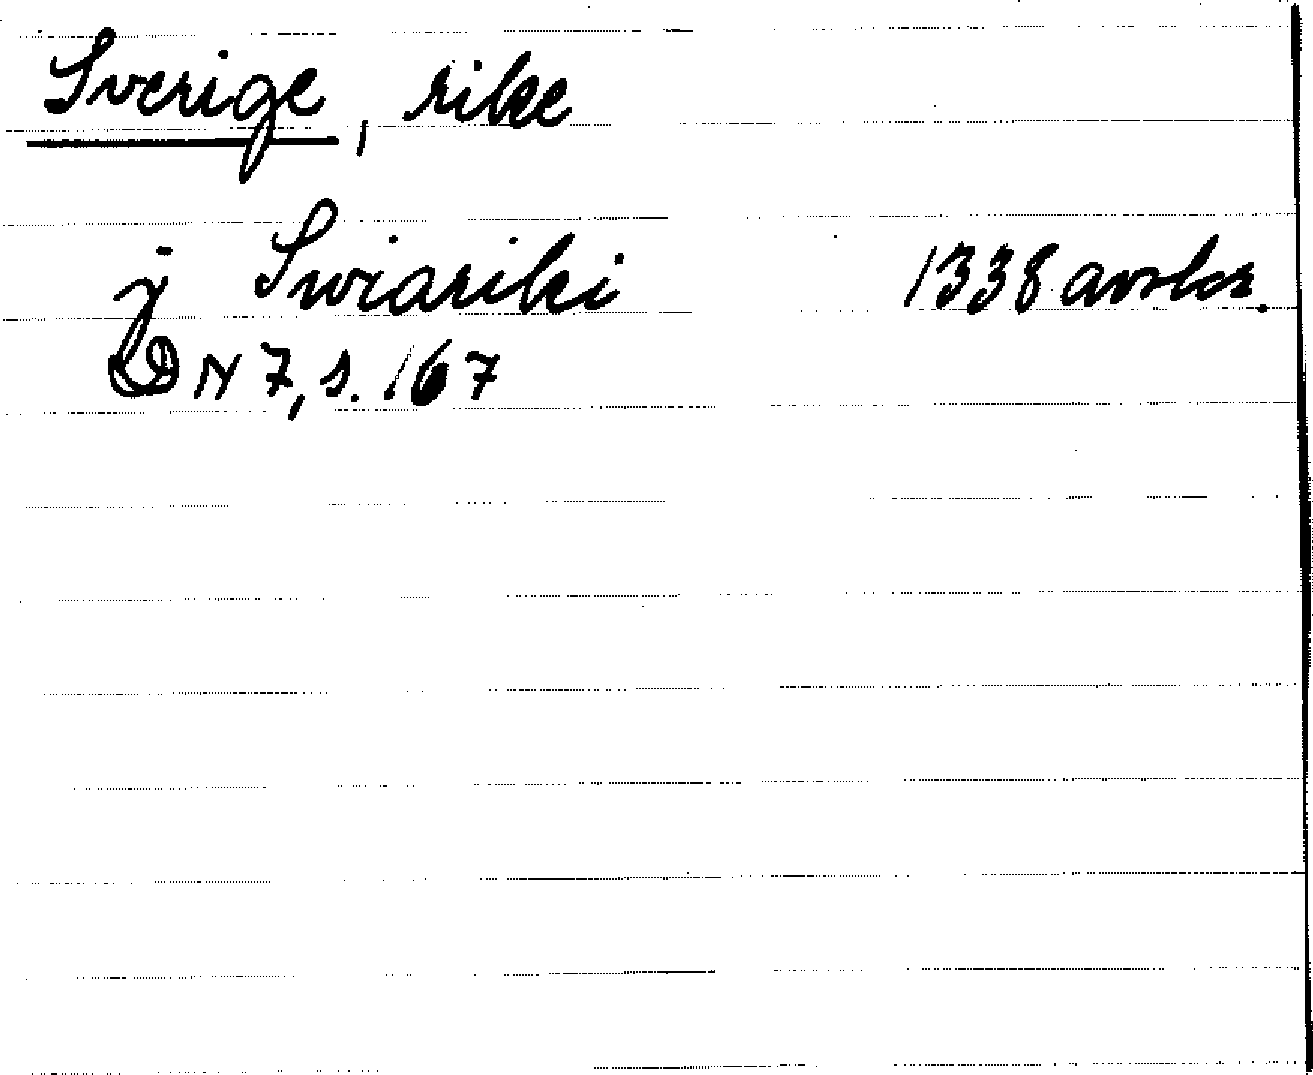 Sverige, rike
j Swiariki 1338 avskr.
DN 7, s. 167